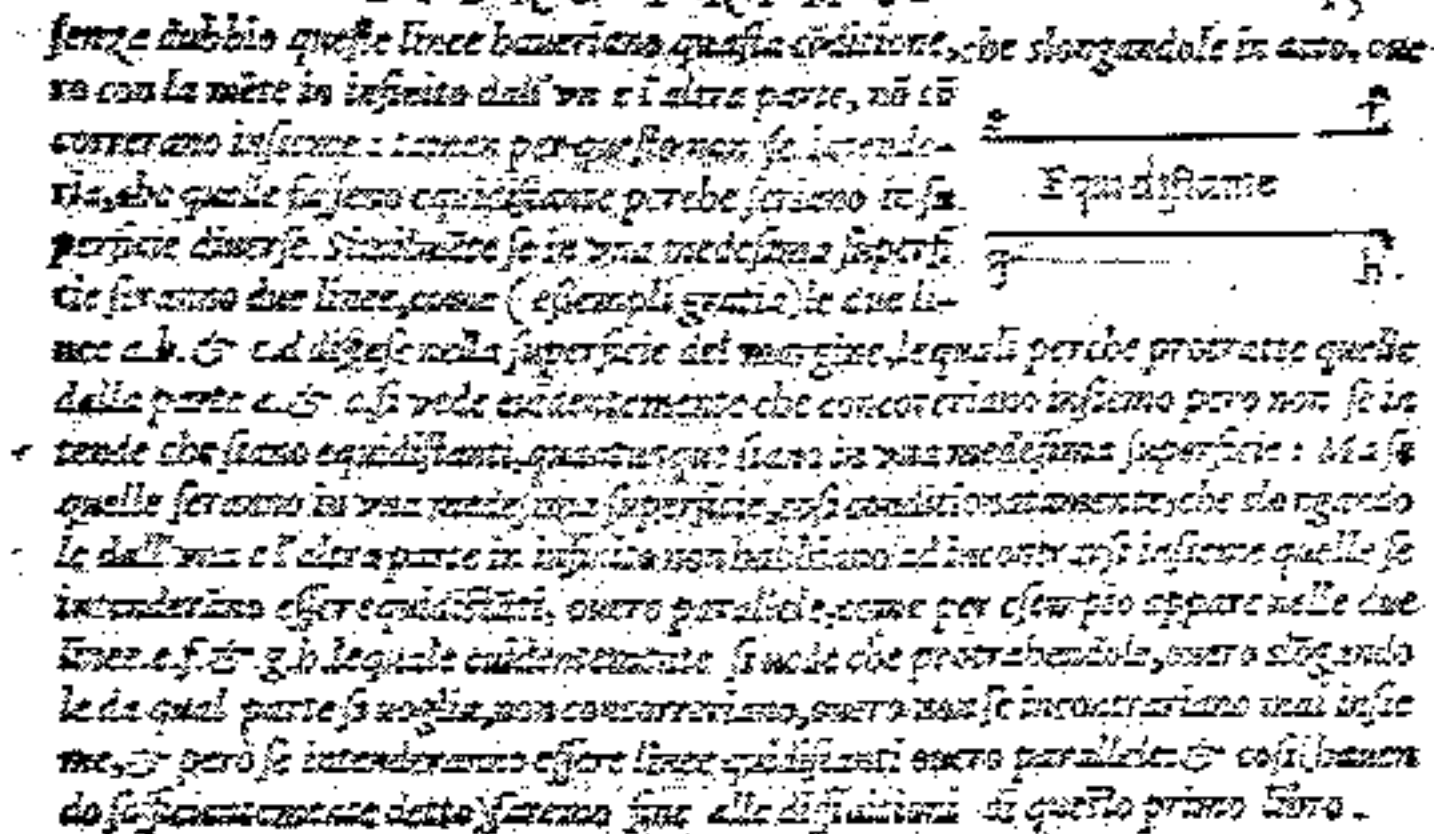 senza dubbio quelle linee haueriano questa cōditione, che slongandole in atto, oue-
ro con la mēte in infinito dall' vna e l'altra parte, nō cō
correrano insieme: tamen per questo non se intende-
ria, che quelle fusseno equidistante perche seriano in su
perficie diuerse. Similmēte se in vna medesima superfi
e f
Equidistante
g h.
cie seranno due linee, come (essempli gratia) le due li-
nee a.b. & c.d. distese nella superficie del margine, le quali perche protratte quelle
dalla parte a. & c. si vede euidentemente che concoreriano insieme pero non se in
tende che siano equidistanti, quantunque siano in vna medesima superficie: Ma se
quelle seranno in vna medesima superficie, cosi conditionatamente, che slongando
le dall' vna e l'altra parte in infinito non habbiano ad incontrarsi insieme quelle se
intenderāno essere equidistāti, ouero paralelle, come per essempio appare nelle due
linee.e.f. & g.h. lequale euidentemente si vede che protrahendole, ouero slōgando
le da qual parte si uoglia, non concorreriano, ouero non se incontrariano mai insie
me, & però se intenderanno essere linee equidistanti ouero paralelle: & cosi hauen
do detto faremo fine alle diffinitioni di questo primo libro.